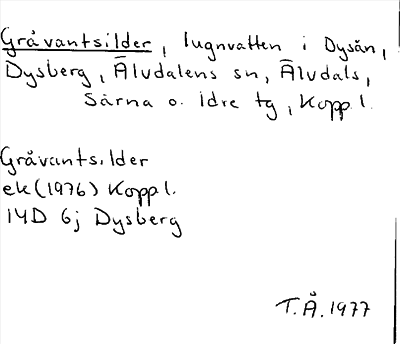 Gråvantsilder, lugnvatten i Dysån,
Dysberg, Älvdalens sn, Älvdals,
Särna o. Idre tg, Koppl.
Gråvantsilder
ek (1976) Koppl.
14D 6j Dysberg
T.Å. 1977